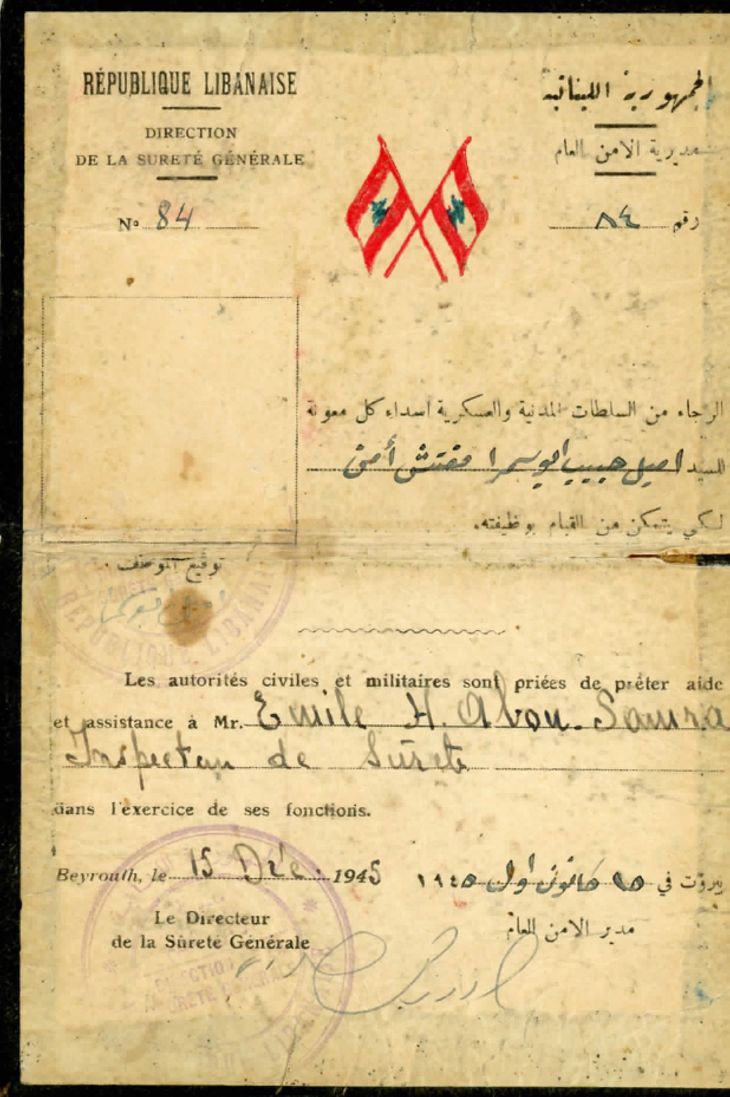 RÉPUBLIQUE LIBANAISE
الجمهورية اللبنانية
DIRECTION
DE LA SURETÉ GÉNÉRALE
مديرية الامن العام
No 84
رقم ٨٤
الرجاء من السلطات المدنية والعسكرية اسداء كل معونة
للسيد اميل حبيب ابو سمرا مفتش أمن
لكي يتمكن من القيام بوظيفته.
توقيع الموظف
RÉPUBLIQUE LIBANAISE
Les autorités civiles et militaires sont priées de prêter aide
et assistance à Mr. Emile H. Abou-Samra
Inspecteur de Sûreté
dans l'exercice de ses fonctions.
Beyrouth, le 15 Déc. 1945
بيروت في ١٥ كانون اول ١٩٤٥
Le Directeur
de la Sûreté Générale
مدير الامن العام
DIRECTION
SURETÉ GÉNÉRALE